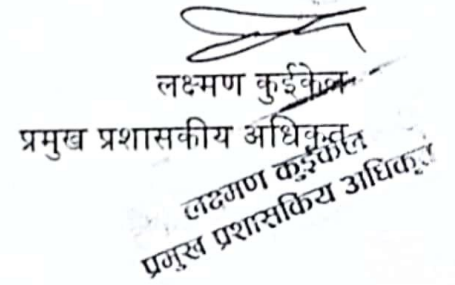 लक्ष्मण कुईकेल
प्रमुख प्रशासकीय अधिकृत
लक्ष्मण कुईकेल
प्रमुख प्रशासकिय अधिकृत